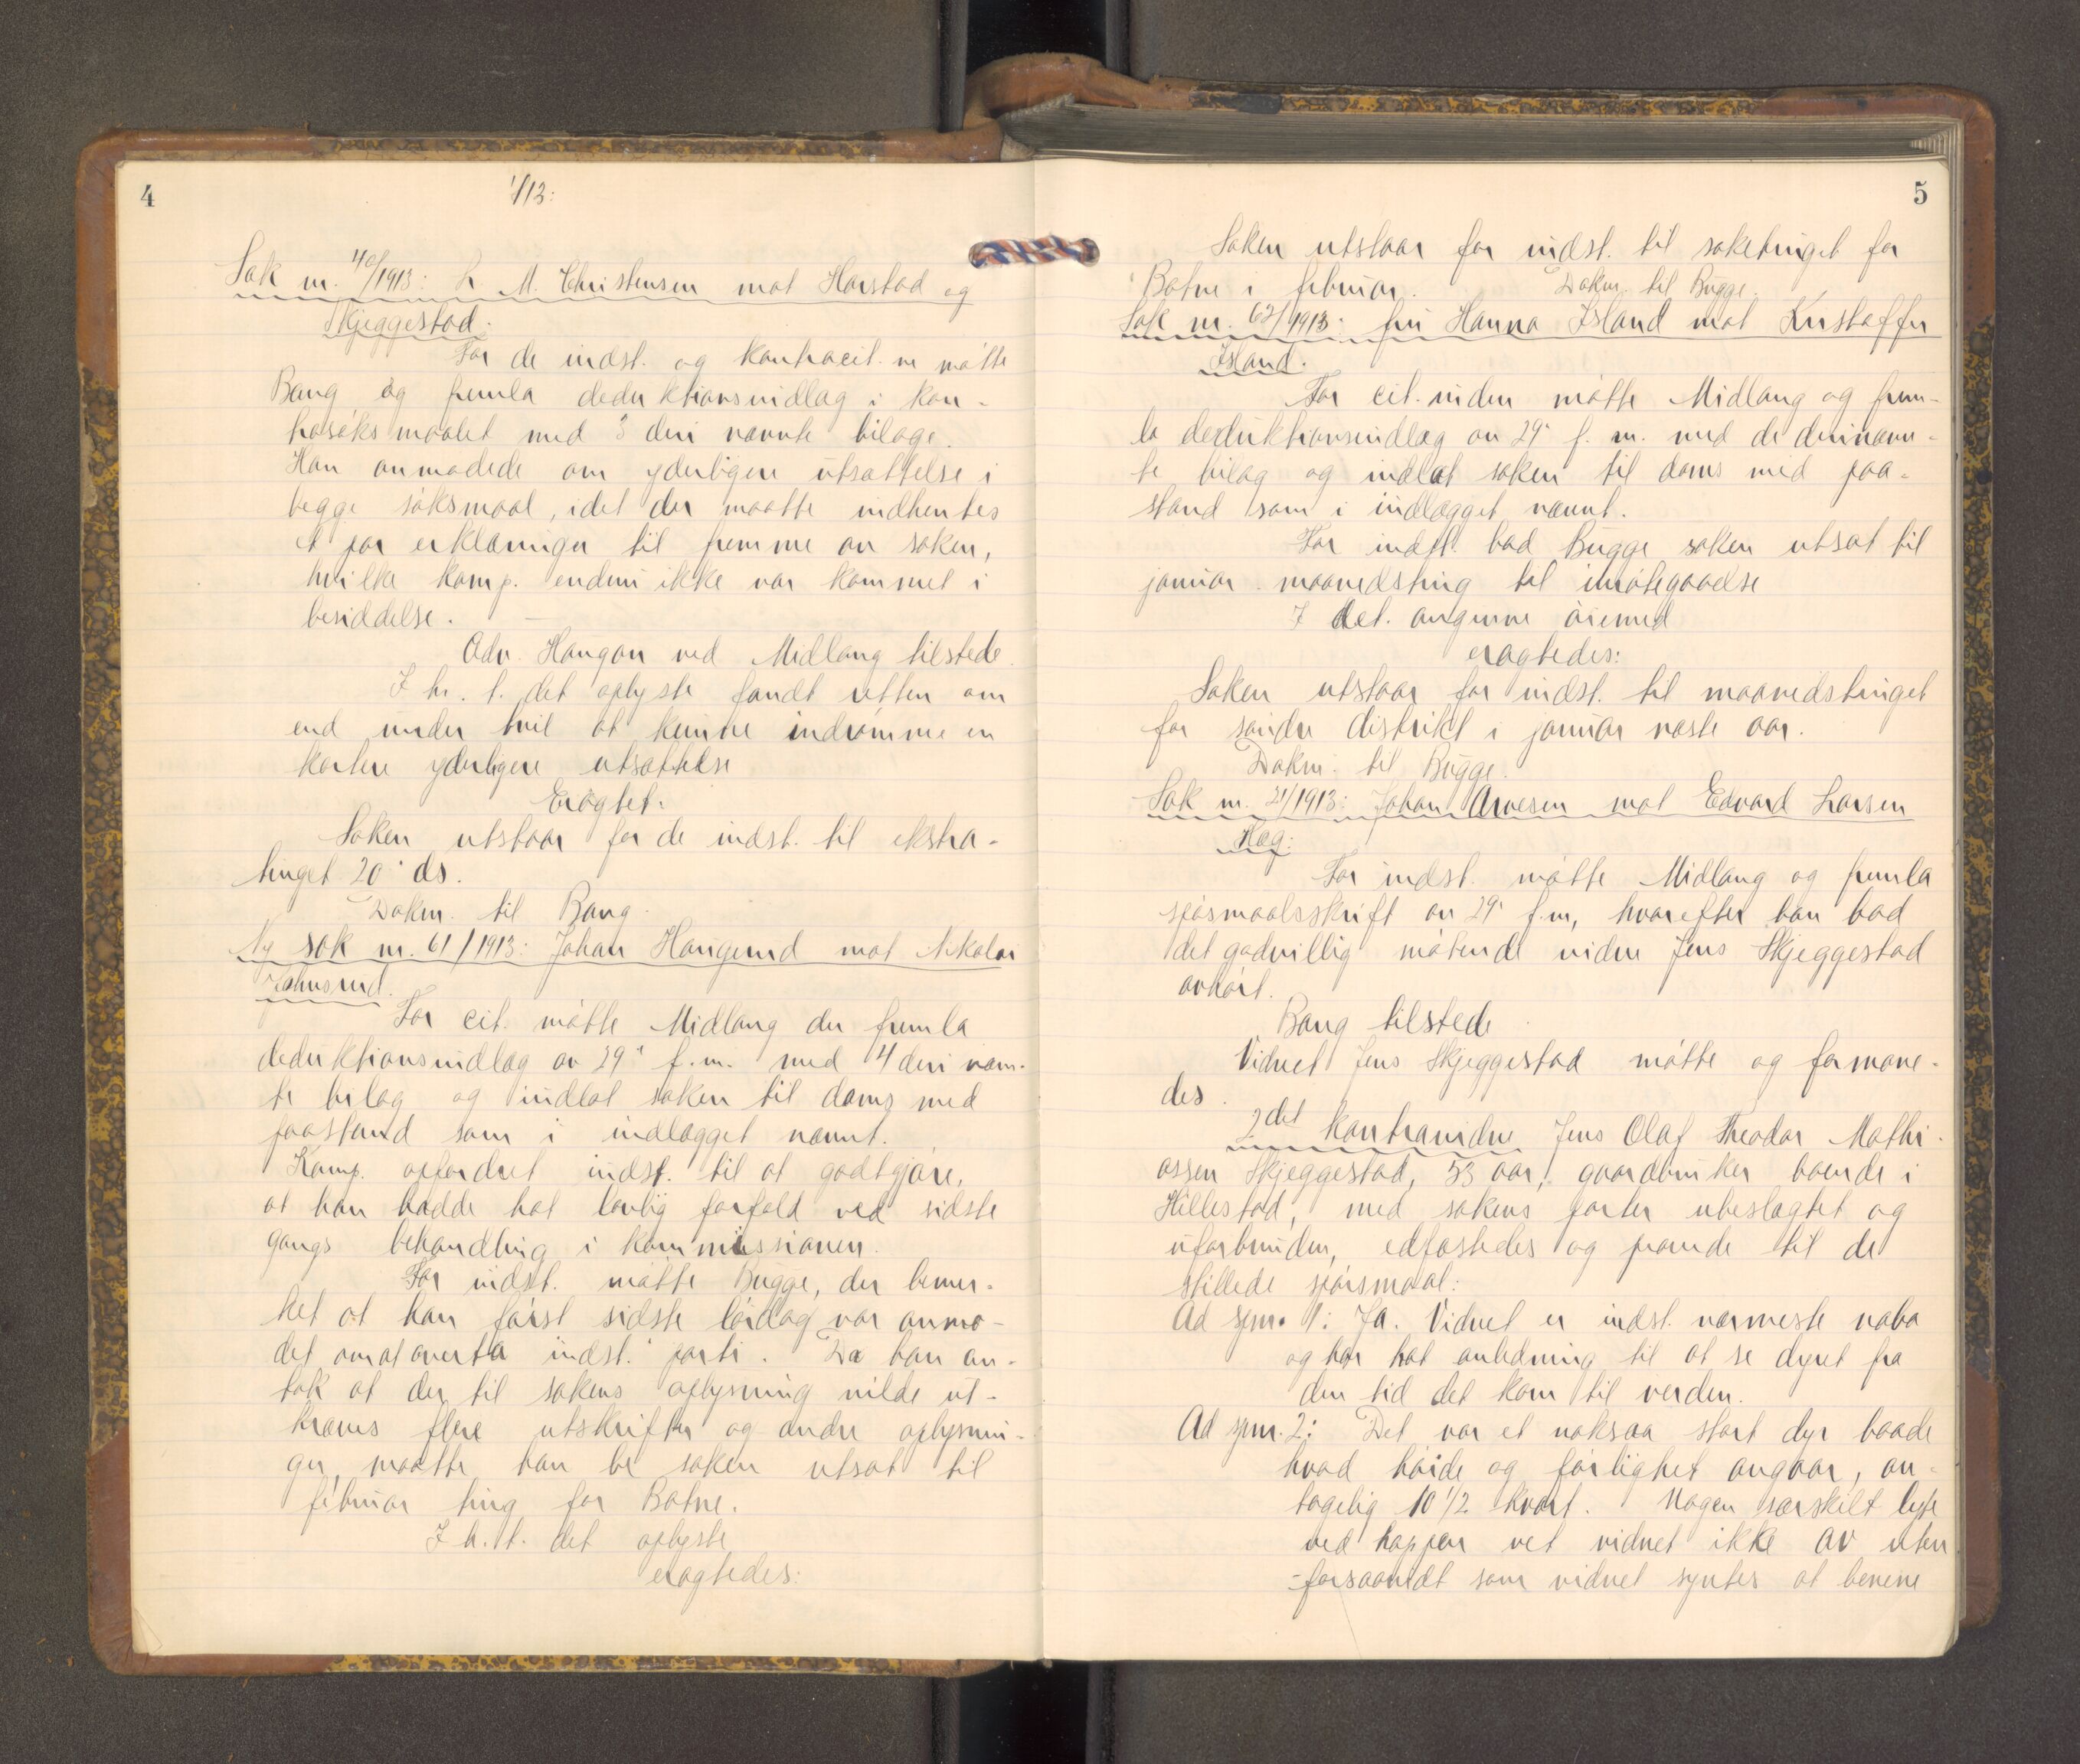 4
1/13:
Sak nr. 40/1913: L. M. Christensen mot Harstad og
Skjeggestad.
For de indst. og kontracit.ne møtte
Bang og fremla deduktionsindlæg i kon-
trasøksmaalet med 3 deri nævnte bilage.
Han anmodede om yderligere utsættelse i
begge søksmaal, idet der maatte indhentes
et par erklæringer til fremme av saken,
hvilke komp. endnu ikke var kommet i
besiddelse.
Adv. Haugan ved Midlang tilstede.
I h. t. det oplyste fandt retten om
end under tvil at kunne indrømme en
kortere yderligere utsættelse
Eragtet:
Saken utstaar for de indst. til ekstra-
tinget 20' ds.
Dokm. til Bang.
Ny sak nr. 61/1913: Johan Haugerud mot Nikolai
Johnsrud.
For cit. møtte Midlang der fremla
deduktionsindlæg av 29' f.m. med 4 deri nævn-
te bilag og indlot saken til doms med
paastand som i indlægget nævnt.
Komp. opfordret indst. til at godtgjøre,
at han hadde hat lovlig forfald ved sidste
gangs behandling i kommissionen.
For indst. møtte Bugge, der bemer-
ket at han først sidste lørdag var anmo-
det om at overta indst.' parti. Da han an-
tok at der til sakens oplysning vilde ut-
kræves flere utskrifter og andre oplysnin-
ger, maatte han be saken utsat til
februar ting for Botne.
I h. t. det oplyste
eragtedes:
5
Saken utstaar for indst. til saketinget for
Botne i februar. Dokm. til Bugge.
Sak nr. 62/1913: fru Hanna Island mot Kristoffer
Island.
For cit.inden møtte Midlang og frem-
la deduktionsindlæg av 29' f. m. med de deri nævn-
te bilag og indlot saken til doms med paa-
stand som i indlægget nævnt.
For indst. bad Bugge saken utsat til
januar maanedsting til imøtegaaelse
I det. angivne øiemed
eragtedes:
Saken utstaar for indst. til maanedstinget
for søndre distrikt i januar næste aar.
Dokm. til Bugge.
Sak nr. 21/1913: Johan Arvesen mot Edvard Larsen
Hag:
For indst. møtte Midlang og fremla
spøsmaalsskrift av 29' f.m, hvorefter han bad
det godvillig møtende vidne Jens Skjeggestad
avhørt.
Bang tilstede.
Vidnet Jens Skjeggestad møtte og formane-
des.
2det kontravidne Jens Olaf Theodor Mathi-
assen Skjeggestad, 53 aar, gaardbruker boende i
Hillestad, med sakens parter ubeslagtet og
uforbunden, edfæstedes og provede til de
stillede spørsmaal:
Ad spm. 1: Ja. Vidnet er indst. nærmeste nabo
og har hat anledning til at se dyret fra
den tid det kom til verden.
Ad spm. 2: Det var et noksaa stort dyr baade
hvad høide og førlighet angaar, an-
tagelig 10 1/2 kvart. Nogen særskilt lyte
ved hoppen vet vidnet ikke av uten
- forsaavidt som vidnet syntes at benene